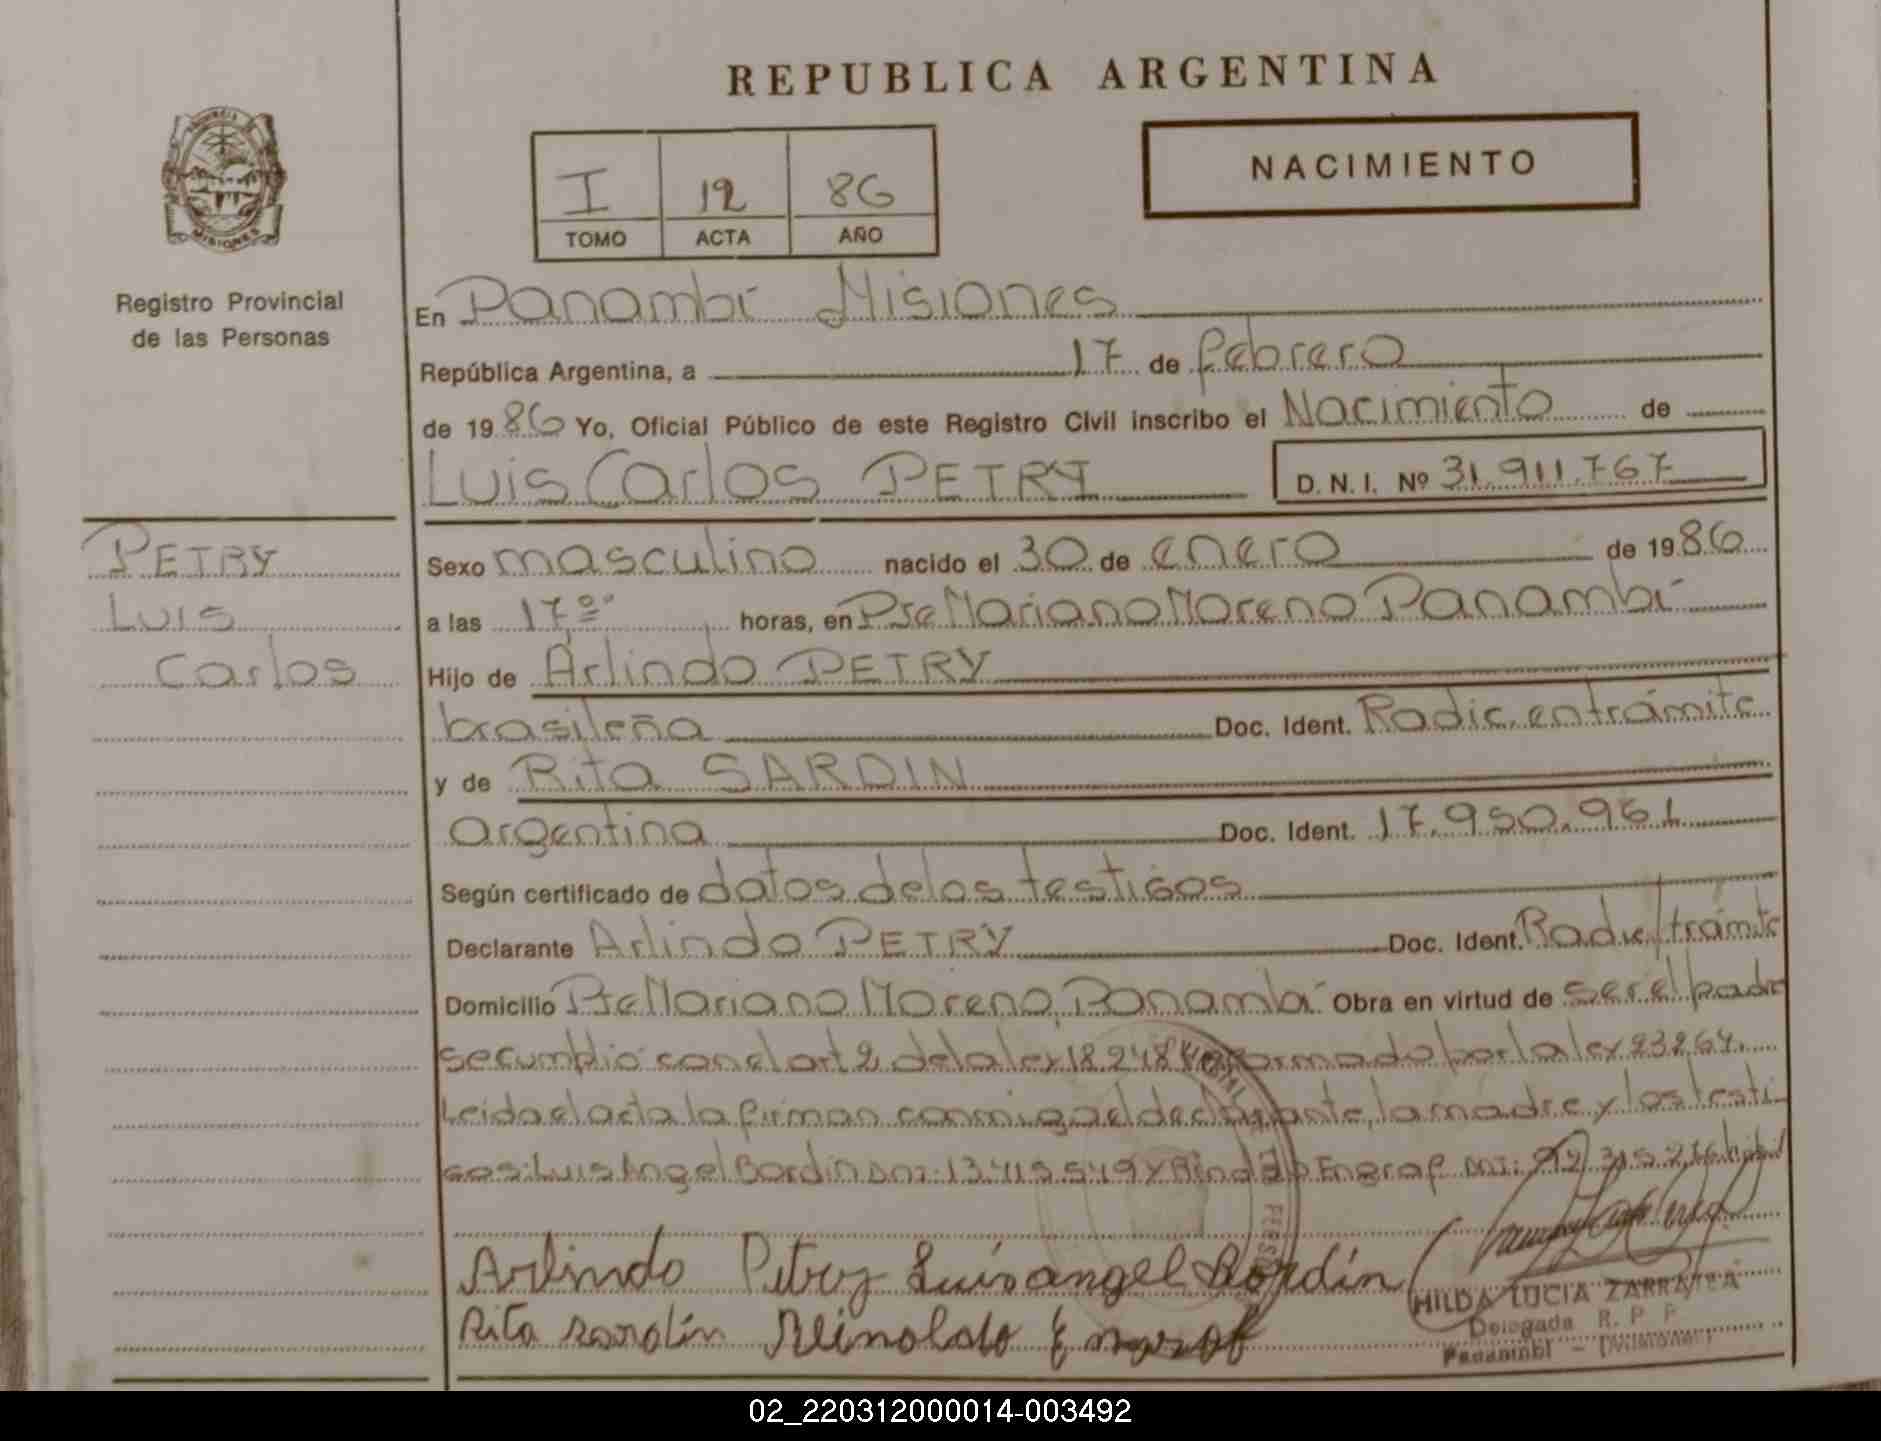 REPUBLICA ARGENTINA
PROVINCIA DE
MISIONES
Registro Provincial
de las Personas
I 12 86
TOMO ACTA AÑO
NACIMIENTO
En Panambí Misiones
República Argentina, a 17 de febrero
de 1986 Yo, Oficial Público de este Registro Civil inscribo el Nacimiento de
Luis Carlos PETRY D. N. I. Nº 31.911.767
PETRY
Luis
Carlos
Sexo masculino nacido el 30 de enero de 1986
a las 17 horas, en Pje Mariano Moreno Panambí
Hijo de Arlindo PETRY
brasileña Doc. Ident. Radic. en trámite
y de Rita SARDIN
argentina Doc. Ident. 17.950.961
Según certificado de datos de los testigos
Declarante Arlindo PETRY Doc. Ident. Radic/trámite
Domicilio Pje Mariano Moreno, Panambí Obra en virtud de ser el padre
se cumplió con el art 2 de la ley 18.248 por la ley 23264.
Leida el acta la firman conmigo el declarante, la madre y los testi-
gos: Luis Angel Bordin DNI: 13.415.549 y DNI:
Arlindo Petry Luis angel Bordín
Rita sardín Reinoldo
HILDA LUCIA ZARRATEA
Delegada R. P. P
Panambí - (Misiones)
02_220312000014-003492